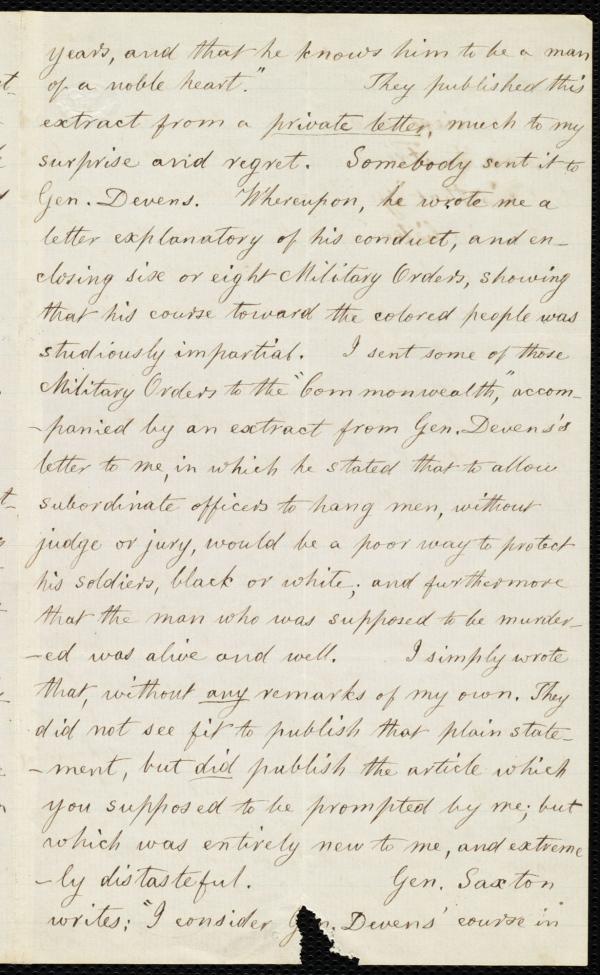 years, and that he knows him to be a man
of a noble heart." They published this
extract from a private letter, much to my
surprise and regret. Somebody sent it to
Gen. Devens. Whereupon, he wrote me a
letter explanatory of his conduct, and en-
closing six or eight Military Orders, showing
that his course toward the colored people was
studiously impartial. I sent some of those
Military Orders to the "Commonwealth," accom-
-panied by an extract from Gen. Devens's
letter to me, in which he stated that to allow
subordinate officers to hang men, without
judge or jury, would be a poor way to protect
his soldiers, black or white; and furthermore
that the man who was supposed to be murder-
-ed was alive and well. I simply wrote
that, without any remarks of my own. They
did not see fit to publish that plain state-
-ment, but did publish the article which
you supposed to be prompted by me; but
which was entirely new to me, and extreme
-ly distasteful. Gen. Saxton
writes: "I consider Gen. Devens' course in